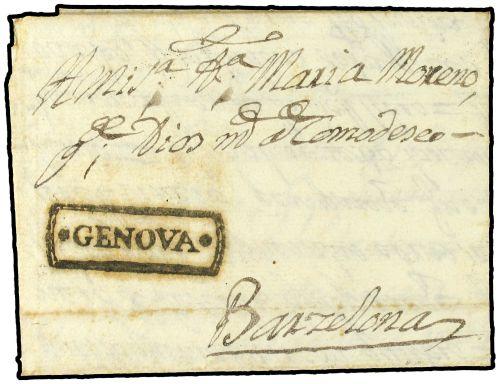 A mi S.ra D.a Maria Moreno,
q.e Dios m.s a.s Como deseo
•GENOVA•
Barzelona